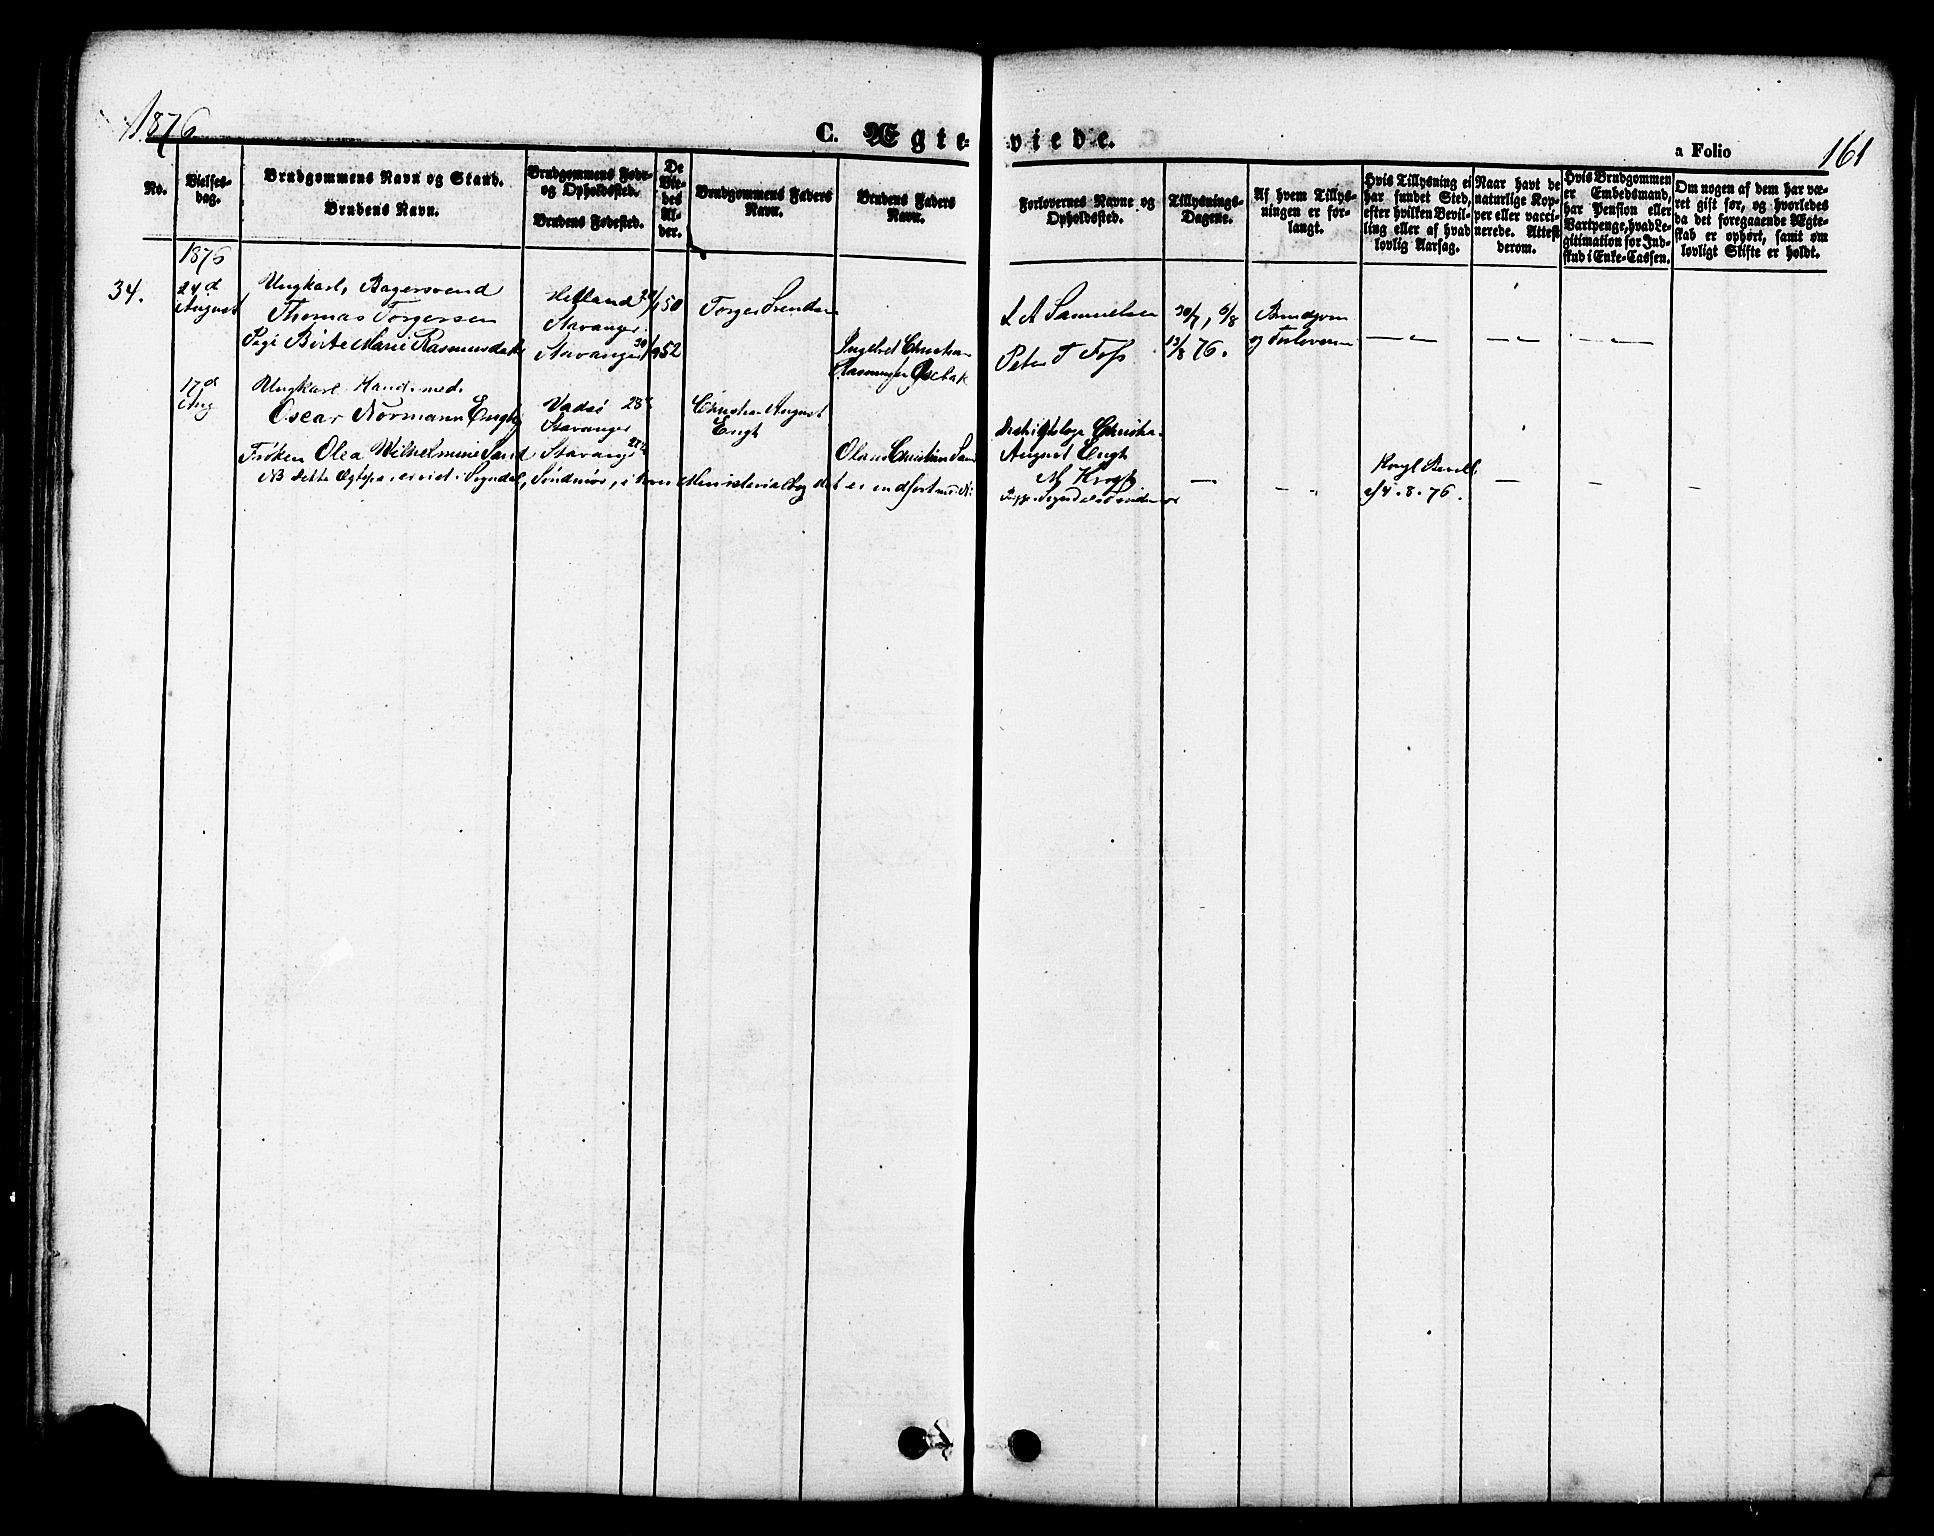 1876
C. Ægte-viede.
a Folio 161
No.
Vielses-dag.
Brudgommens Navn og Stand.
Brudens Navn.
Brudgommens Føde- og Opholdssted.
Brudens Fødested.
De Vie-des Al-der.
Brudgommens Faders Navn.
Brudens Faders Navn.
Forlovernes Navne og Opholdssted.
Tillysnings-Dagene.
Af hvem Tillys-ningen er for-langt.
Hvis Tillysning ei har fundet Sted, efter hvilken Bevil-ling eller af hvad lovlig Aarsag.
Naar havt de naturlige Kop-per eller vacci-nerede. Attest derom.
Hvis Brudgommen er Embedsmand, har Pension eller Vartpenge, hvad Le-gitimation for Ind-skud i Enke-Cassen.
Om nogen af dem har væ-ret gift før, og hvorledes da det foregaaende Ægte-skab er ophørt, samt om lovligt Skifte er holdt.
1876
34.
24d August
Ungkarl, Bagersvend
Thomas Torgersen
Pige Birte Marie Rasmusdatter
Hetland
Stavanger
Stavanger
50
52
Torger Svendsen
Ingebret Christian
Rasmussen
L A Samuelsen
Peter T Foss
30/7, 6/8
13/8 76.
Brudgom
og Forlovere
— — — — — —
17d Aug
Ungkarl
Oscar Normann Engh
Frøken Olea Wilhelmine Sand
Vadsø 28
Stavanger
Stavanger
Christian August
Engh
Olaus Christian Sand
Distriktslæge Christian
August Engh
M Krogh
Kngl Bevill.
af 4.8.76.
NB Dette Ægtepar er viet i Sogndal, Søndmør, i hvis Ministerialbog det er indført